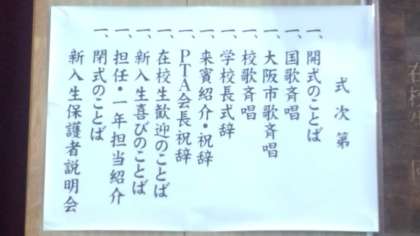 式次第
一、開式のことば
一、国歌斉唱
一、大阪市歌斉唱
一、校歌斉唱
一、学校長式辞
一、来賓紹介・祝辞
一、PTA会長祝辞
一、在校生歓迎のことば
一、新入生喜びのことば
一、担任・一年担当紹介
一、閉式のことば
新入生保護者説明会